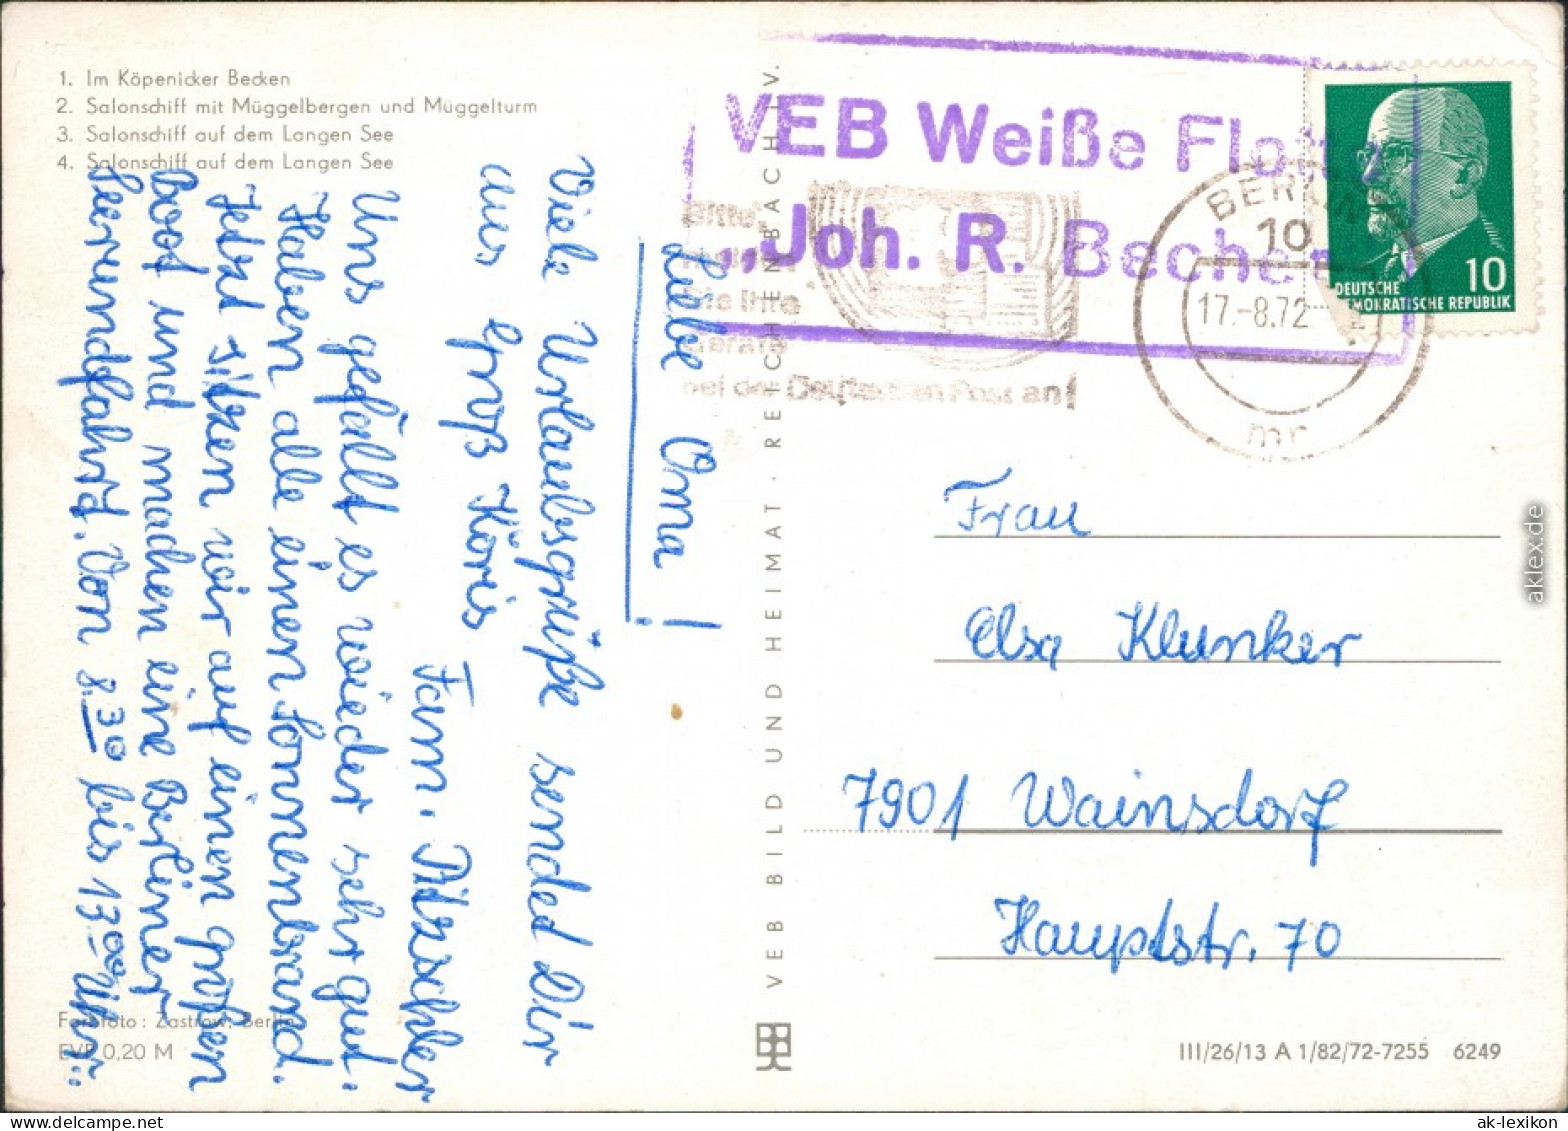 1. Im Köpenicker Becken
2. Salonschiff mit Müggelbergen und Müggelturm
3. Salonschiff auf dem Langen See
4. Salonschiff auf dem Langen See
Liebe Oma!
Viele Urlaubsgrüße sended Dir
aus Groß Köris
Fam. Pitzschler
Uns gefällt es wieder sehr gut.
Haben alle einen Sonnenbrand.
Jetzt sitzen wir auf einen großen
Boot und machen eine Berliner
Seerundfahrt. Von 8.30 bis 13.00 Uhr.
Farbfoto: Zastrow, Berlin
EVP 0,20 M
VEB BILD UND HEIMAT · REICHENBACH I. V.
VEB Weiße Flotte
„Joh. R. Becher
bei der Deutschen Post an!
BERLIN
10
17.-8.72
mr
10
DEUTSCHE
DEMOKRATISCHE REPUBLIK
Frau
Elsa Klunker
7901 Wainsdorf
Hauptstr. 70
III/26/13 A 1/82/72-7255 6249
aklex.de
ak-lexikon